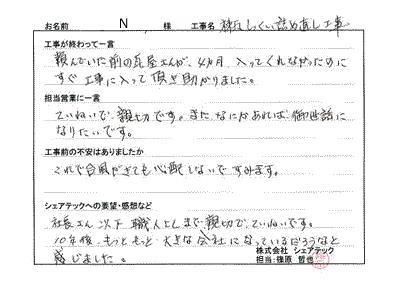 お名前 N 様 工事名 棟瓦しっくい詰め直し工事
工事が終わって一言
頼んでいた前の瓦屋さんが、4ヵ月、入ってくれなかったのに
すぐ工事に入って頂き助かりました。
担当営業に一言
ていねいで、親切です。また、なにかあれば、御世話に
なりたいです。
工事前の不安はありましたか
これで台風がきても心配しないですみます。
シェアテックへの要望・感想など
社長さん以下職人としまも親切で、ていねいです。
10年後、もっともっと大きな会社になっているだろうなと
感じました。
株式会社 シェアテック
担当：篠原 哲也